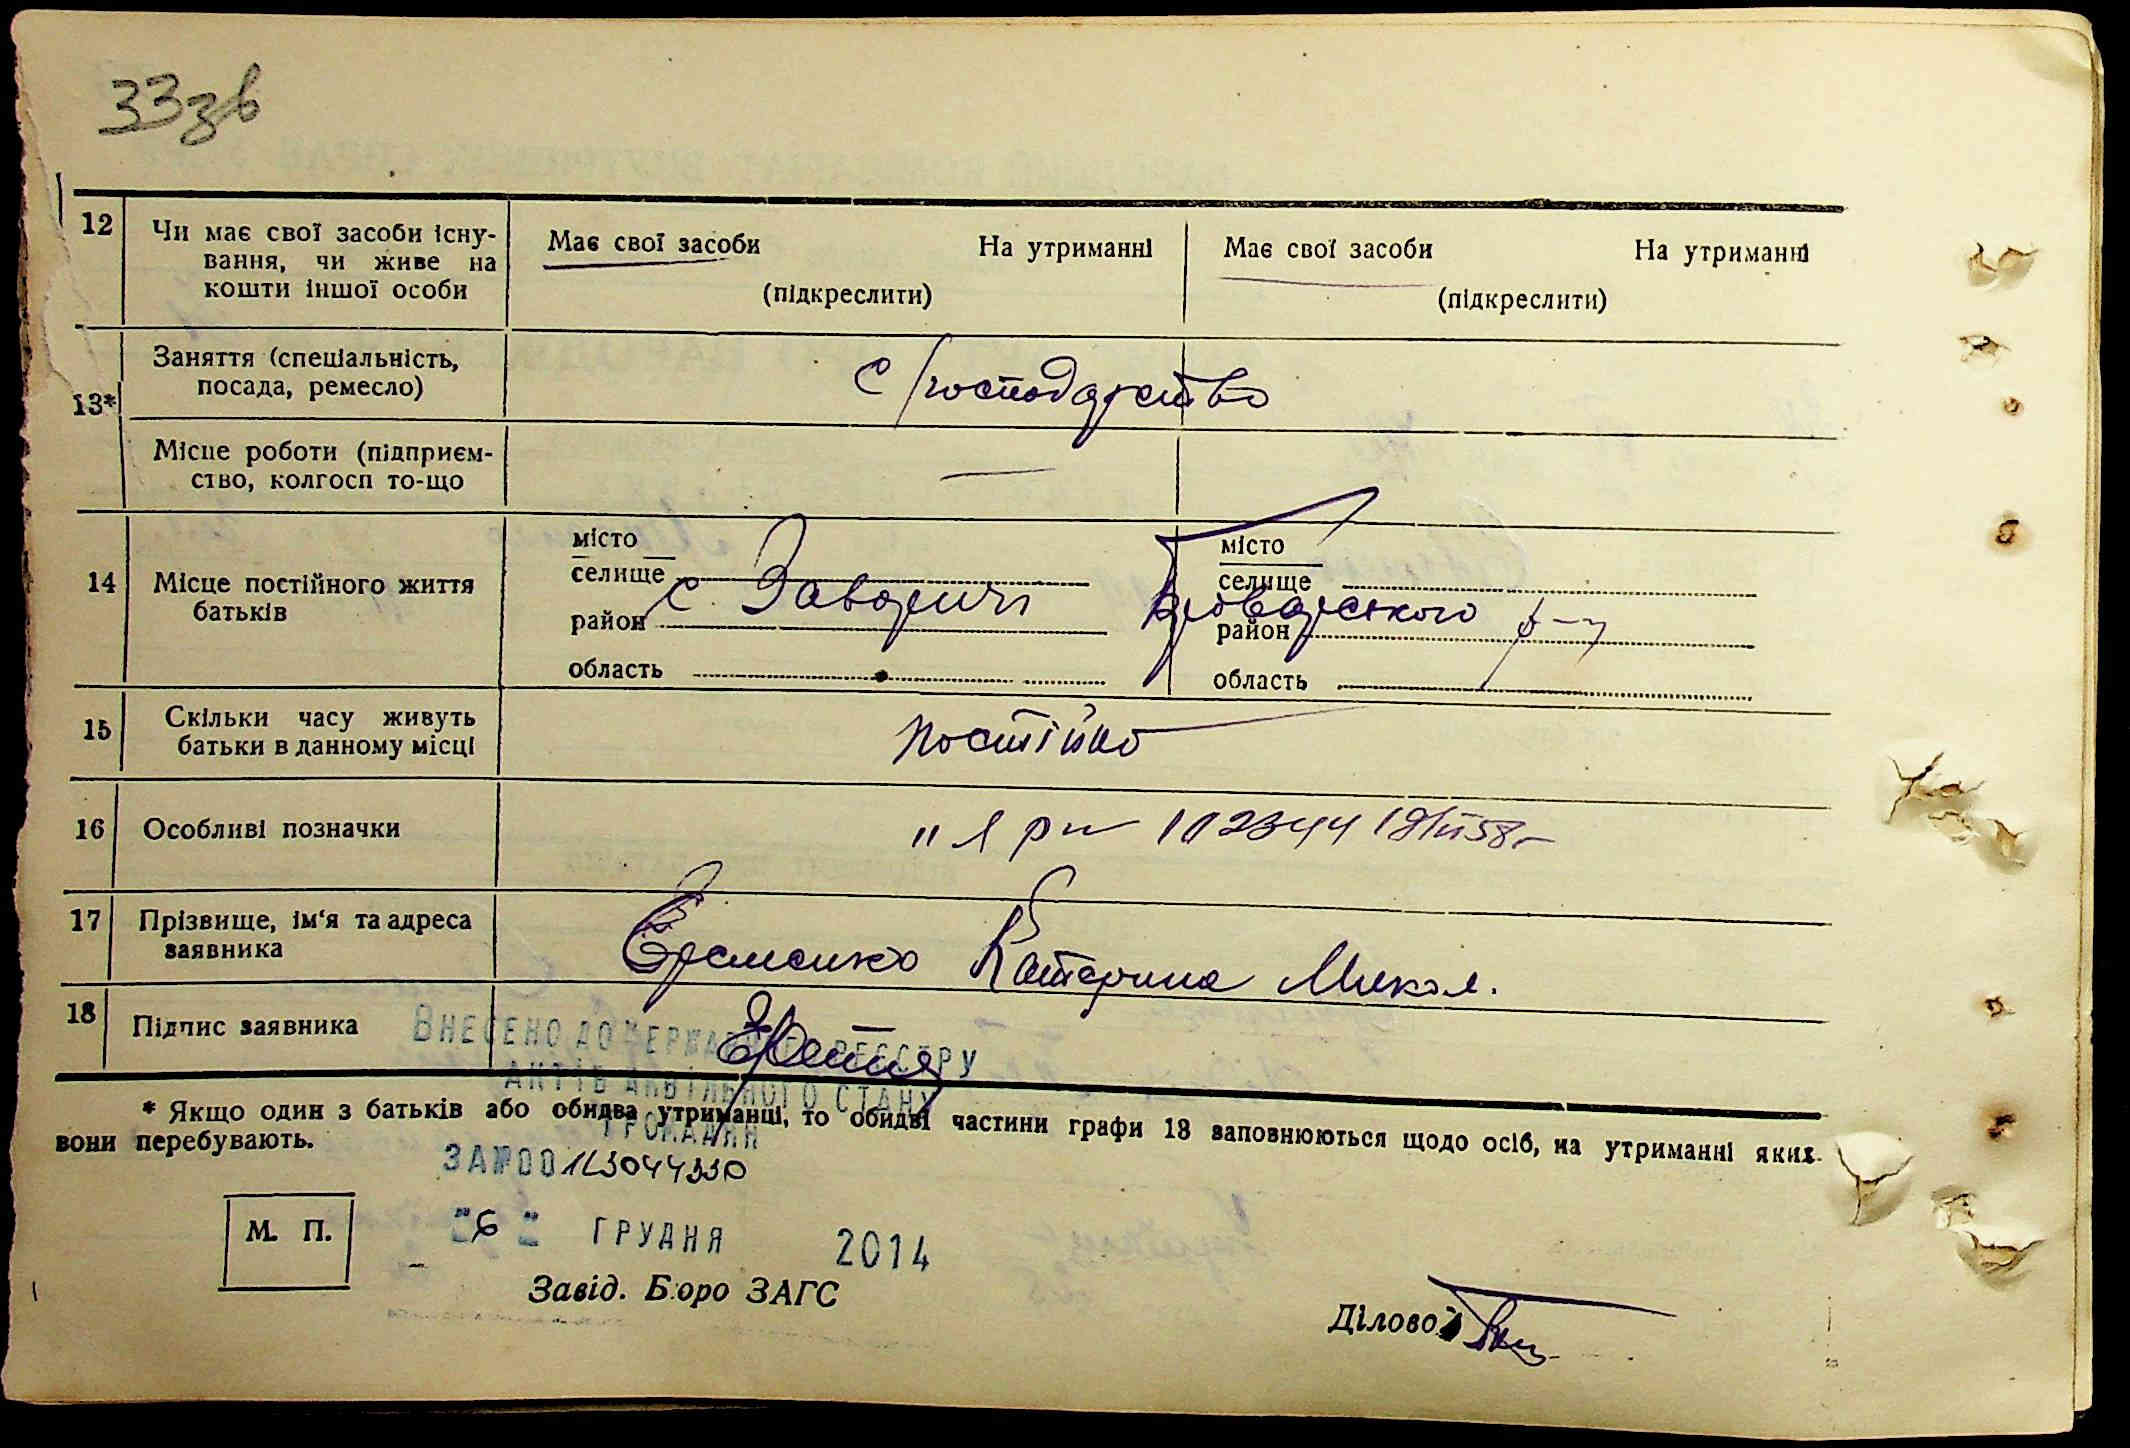 33зв
12
Чи має свої засоби існу-
вання, чи живе на
кошти іншої особи
Має свої засоби На утриманні
(підкреслити)
Має свої засоби На утриманні
(підкреслити)
13*
Заняття (спеціальність,
посада, ремесло)
с/господарство
Місце роботи (підприєм-
ство, колгосп то-що
—
14
Місце постійного життя
батьків
місто
селище
район
область
с. Заворичі Броварського р-у
місто
селище
район
область
15
Скільки часу живуть
батьки в данному місці
постійно
16
Особливі позначки
17
Прізвище, ім'я та адреса
заявника
Єременко Катерина Микол.
18
Підпис заявника
ВНЕСЕНО ДО ДЕРЖАВНОГО РЕЄСТРУ
АКТІВ ЦИВІЛЬНОГО СТАНУ
ГРОМАДЯН
* Якщо один з батьків або обидва утриманці, то обидві частини графи 13 заповнюються щодо осіб, на утриманні яких
вони перебувають.
ЗА №00113044330
М. П.
"6" ГРУДНЯ 2014
Завід. Бюро ЗАГС
Діловод